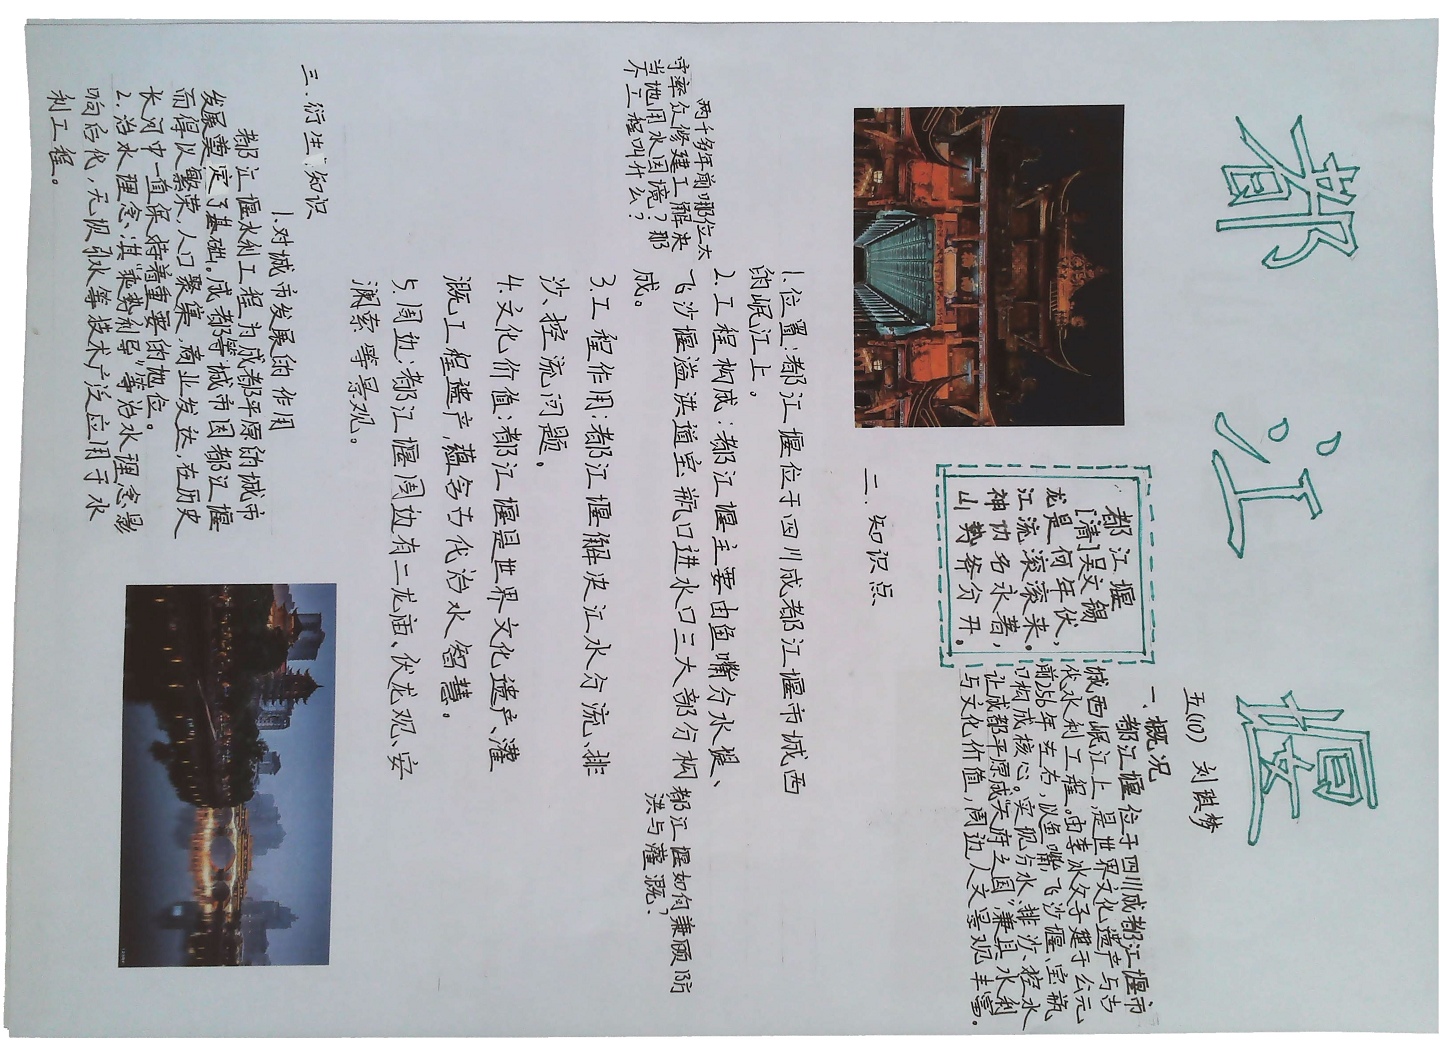 都江堰
五(10) 刘琪梦
都江堰
[清]吴文锡
龙是何年伏,
江流滚滚来。
神功名永著,
山势斧分开。
一、概况
都江堰位于四川成都都江堰市
城西岷江上,是世界文化遗产与古
代水利工程。由李冰父子建于公元
前256年左右,以鱼嘴、飞沙堰、宝瓶
口构成核心。实现分水、排沙、控水
让成都平原成"天府之国"兼具水利
与文化价值,周边人文景观丰富。
二、知识点
1.位置:都江堰位于四川成都都江堰市城西
的岷江上。
2.工程构成:都江堰主要由鱼嘴分水堤、
飞沙堰溢洪道宝瓶口进水口三大部分构
成。
3.工程作用:都江堰解决江水分流、排
沙、控流问题。
4.文化价值:都江堰是世界文化遗产、灌
溉工程遗产,蕴含古代治水智慧。
5.周边:都江堰周边有二龙庙、伏龙观、安
澜索等景观。
两千多年前哪位太
守率众修建工解决
当地用水困境?那
个工程叫什么?
都江堰如何兼顾防
洪与灌溉?
三、衍生知识
1.对城市发展的作用
都江堰水利工程为成都平原的城市
发展奠定了基础。成都等城市因都江堰
而得以繁荣,人口聚集,商业发达,在历史
长河中一直保持着重要的地位。
2.治水理念:其"乘势利导"等治水理念影
响后代,无坝引水等技术广泛应用于水
利工程。